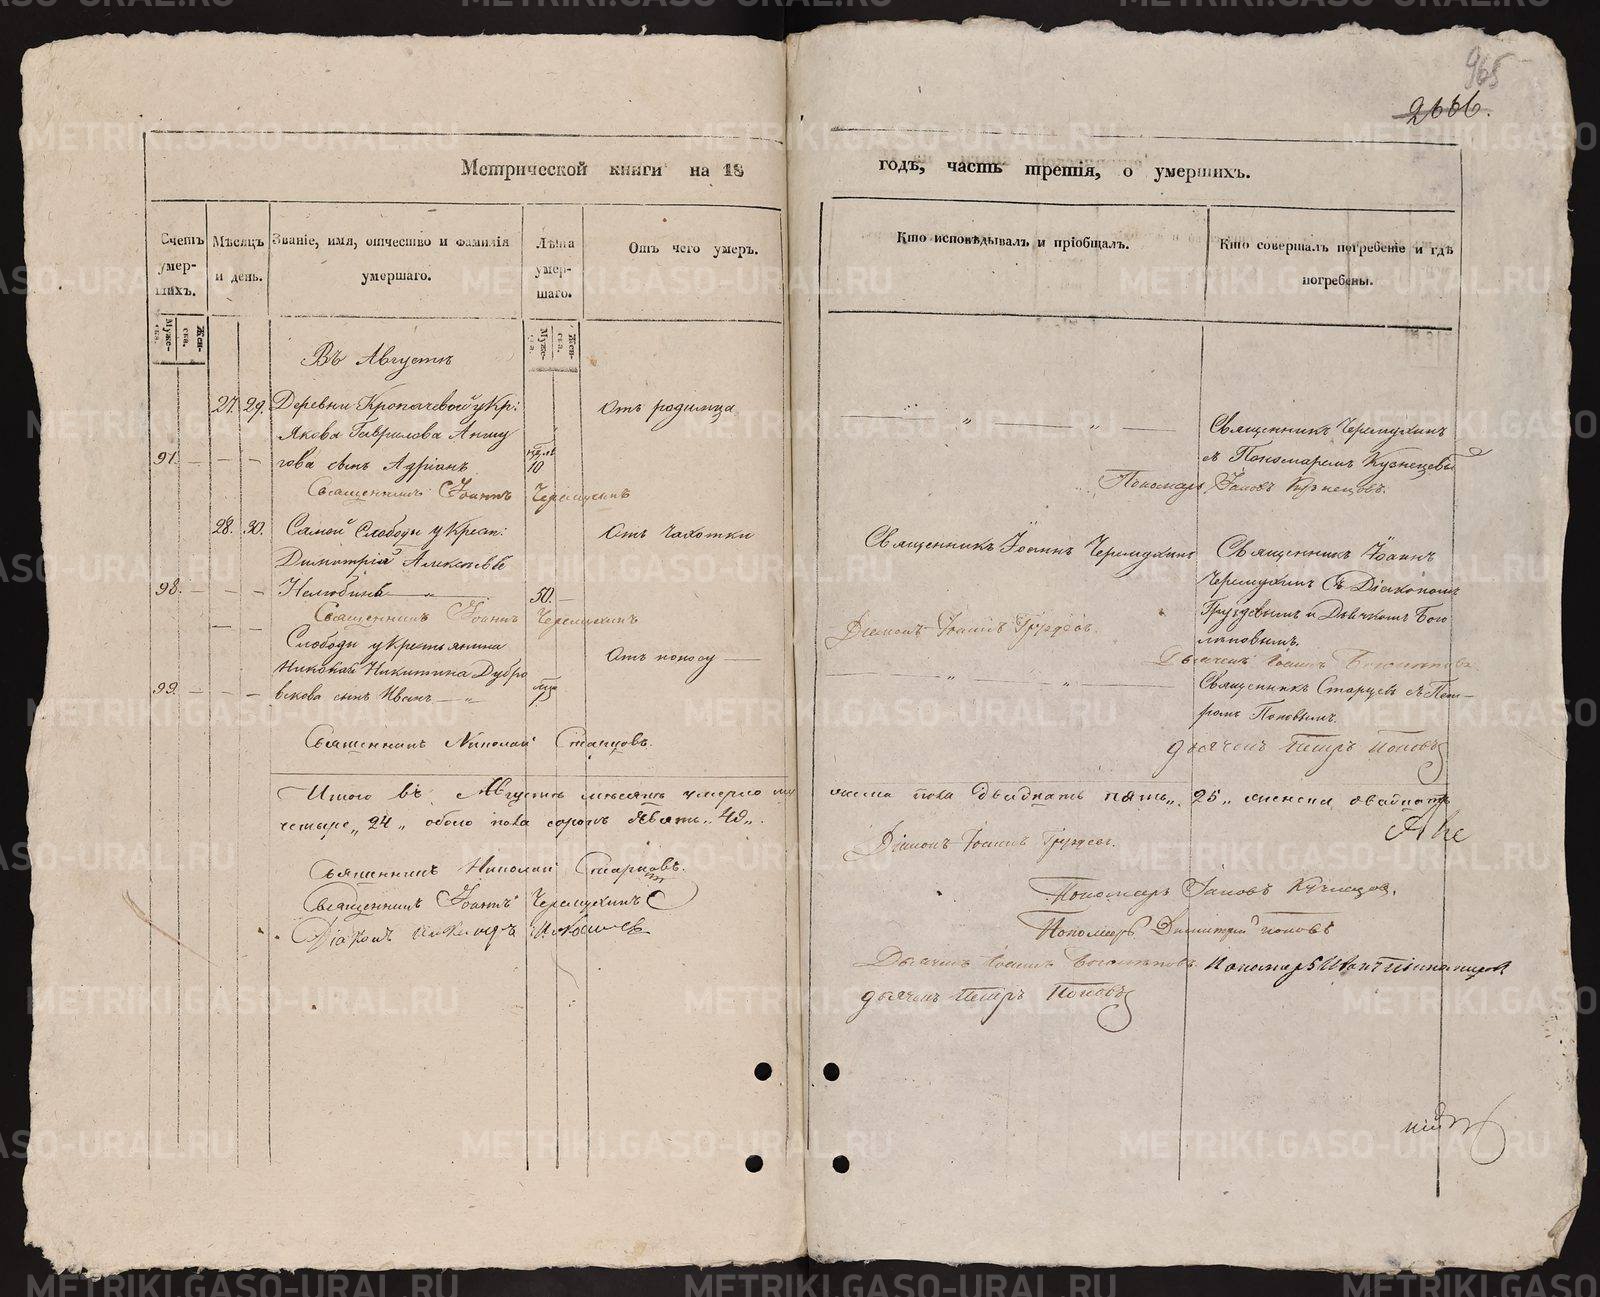 965
2666.
Метрической книги на 18
годъ, часть третія, о умершихъ.
Счетъ умер-шихъ.
Мѣсяцъ и день.
Званіе, имя, отчество и фамилія умершаго.
Лѣта умер-шаго.
Отъ чего умеръ.
Кто исповѣдывалъ и пріобщалъ.
Кто совершалъ погребеніе и гдѣ погребены.
Муже-ска.
Жен-ска.
Муже-
Жен-ска.
Въ Августѣ
27. 29. Деревни Кропачевой у Кр: Отъ родимца
Якова Гаврилова
97. гова сынъ Адріанъ 10
Священникъ Черемухинъ
съ Пономаремъ Кузнецовы
Священникъ Іоаннъ Черемухинъ
Пономарь Іаковъ Кузнецовъ.
28. 30. Самой Слободы у Крест: Отъ чахотки
Димитрій Алексѣевъ
98. Нелюбинъ 50.
Священникъ Іоаннъ Черемухинъ
Священникъ Іоаннъ
Черемухинъ съ Діакономъ
Груздевымъ и Дьячкомъ Бого
Священникъ Іоаннъ Черемухинъ
Діаконъ Іоаннъ Груздевъ.
Дьячекъ Іоаннъ
Слободы у Крестьянина Отъ поносу
Николая Никитина Дубро
99. вскова сынъ Иванъ
Священникъ Старцевъ съ Пет-
ромъ Поповымъ.
Священникъ Николай Старцовъ.
дьячекъ Петръ Поповъ
Итого въ Августѣ мѣсяцѣ умерло
мужеска пола двадцать пять „ 25 „ женска двадцать
четыре „ 24 „ обоего пола сорокъ девять „ 49 „.
Діаконъ Іоаннъ Груздевъ.
Священникъ Николай Старцовъ.
Священникъ Іоаннъ Черемухинъ
Пономарь Іаковъ Кузнецов.
Пономарь Димитрій Поповъ
Дьячекъ Іоаннъ
дьячекъ Петръ Поповъ